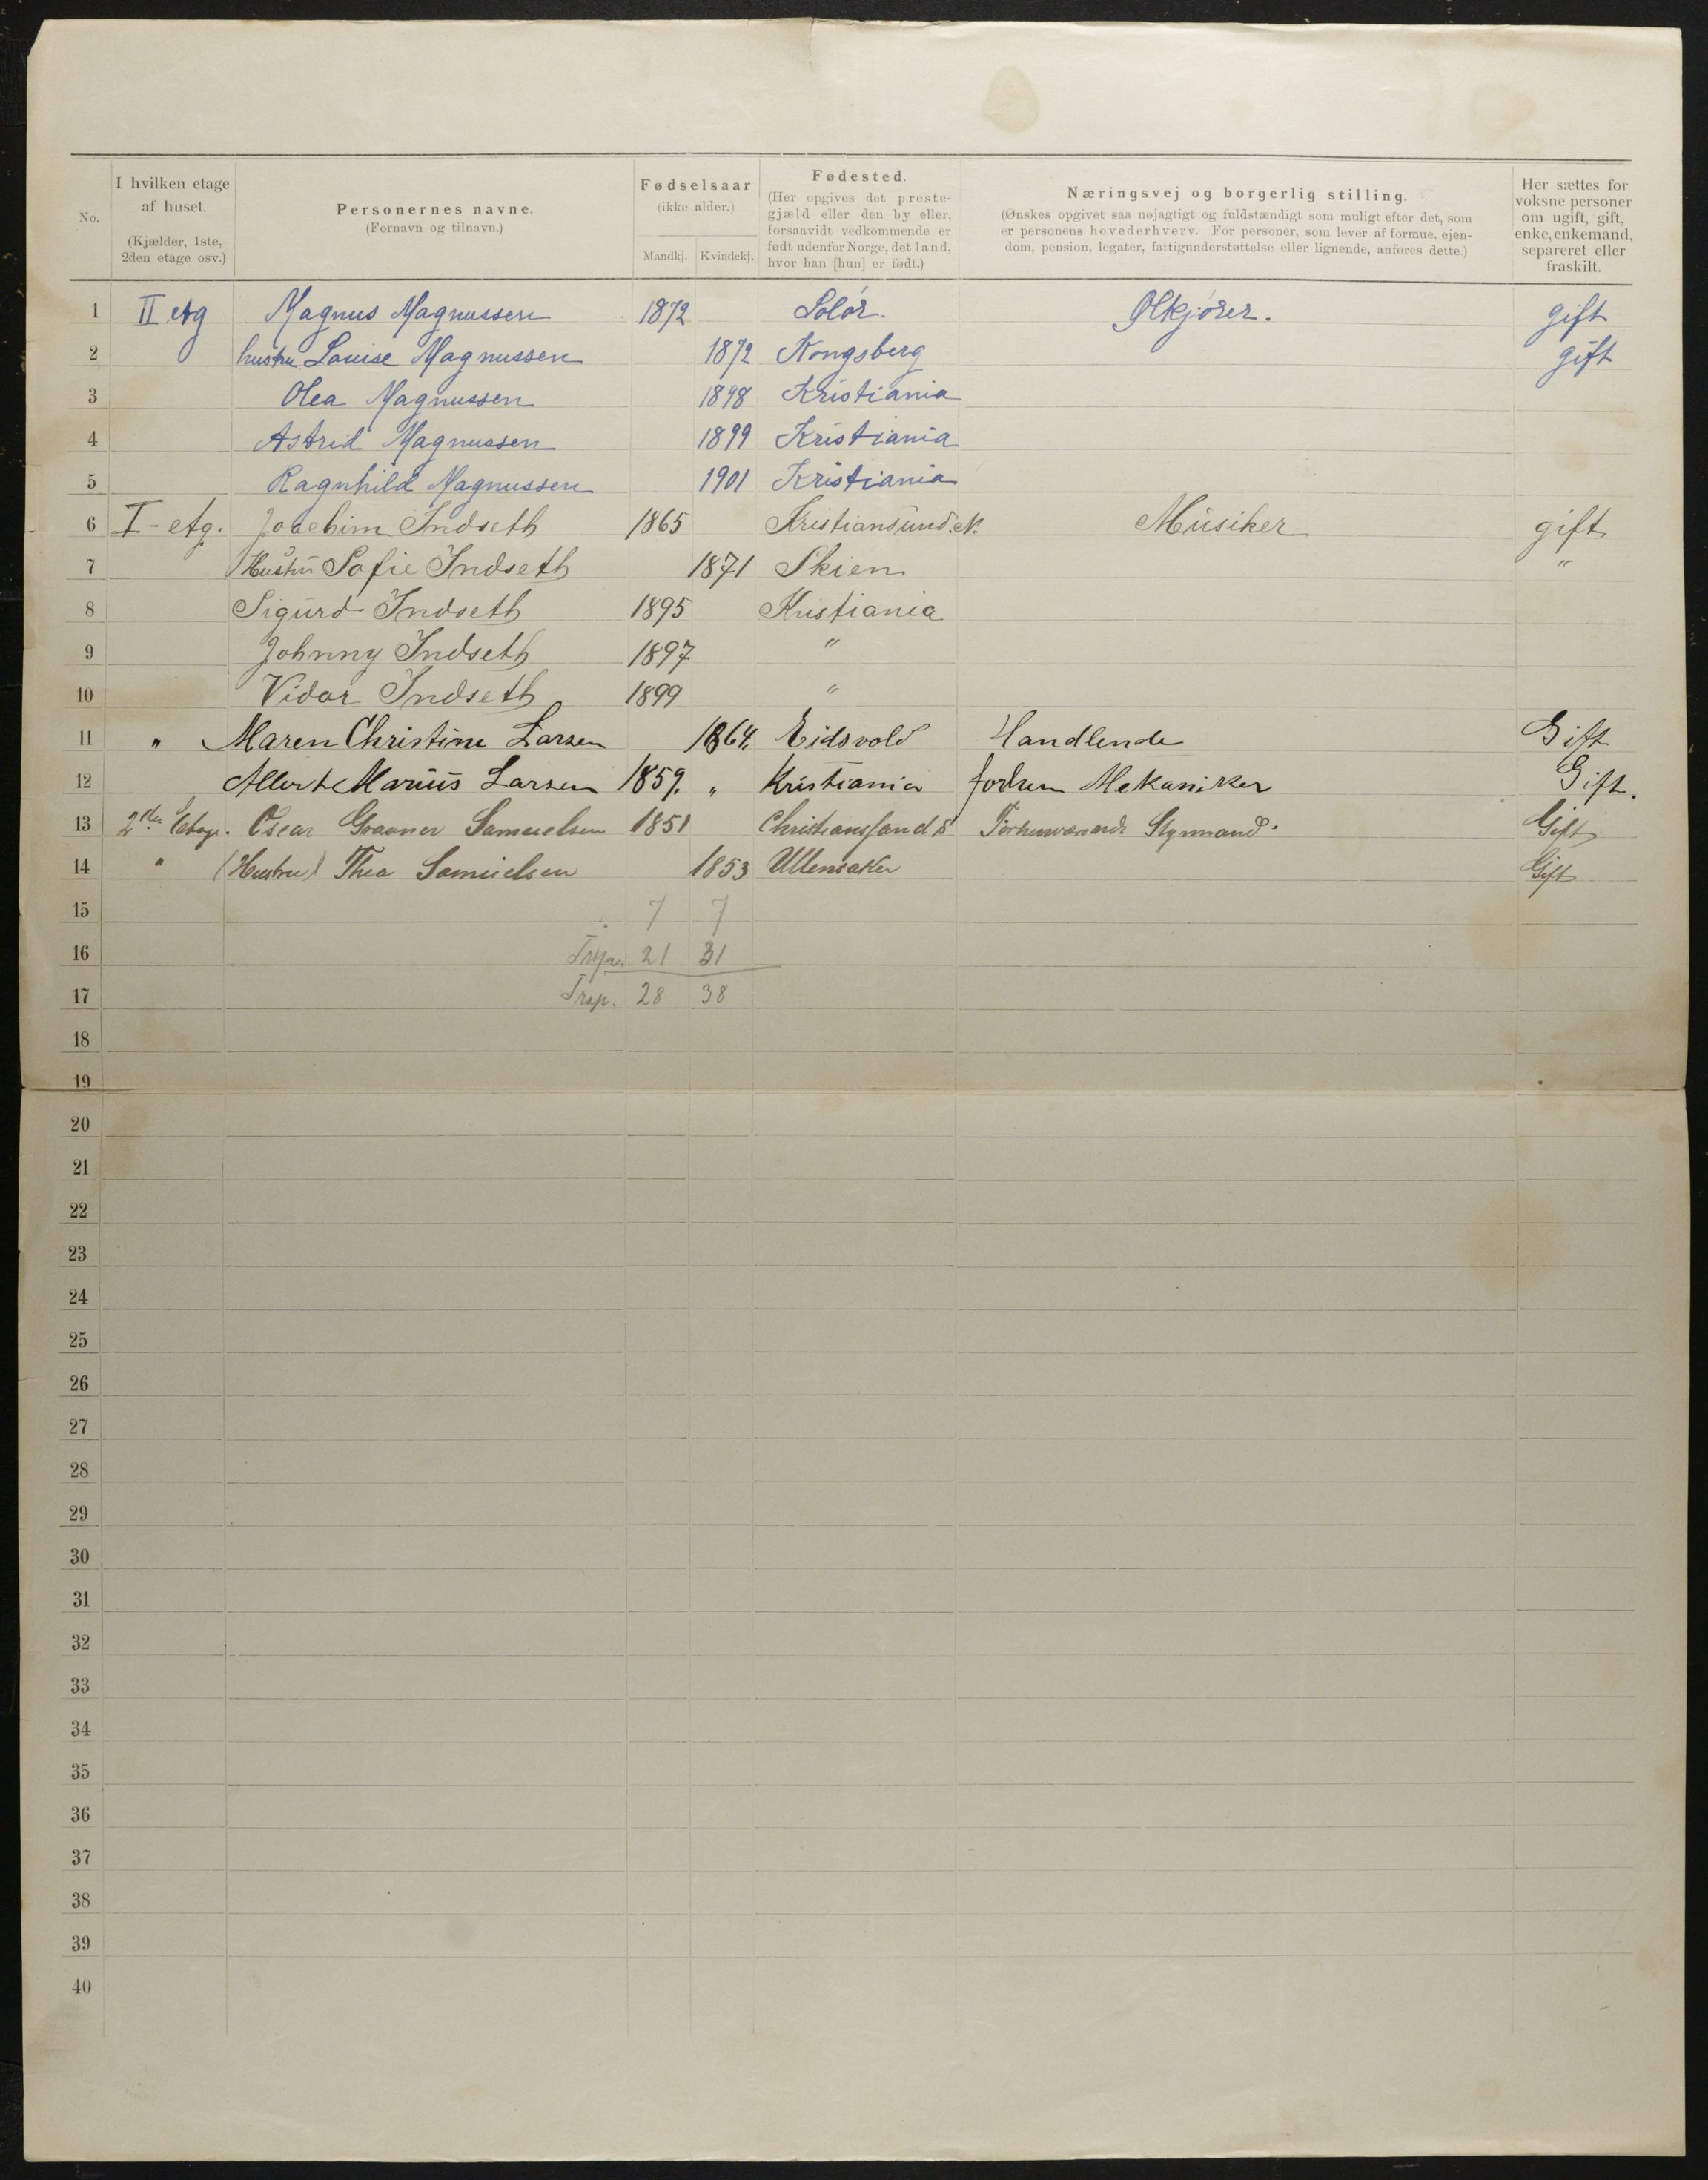 No.
I hvilken etage af huset.
(Kjælder, 1ste, 2den etage osv.)
Personernes navne.
(Fornavn og tilnavn.)
Fødselsaar
(ikke alder.)
Mandkj. Kvindekj.
Fødested.
(Her opgives det preste-
gjæld eller den by eller,
forsaavidt vedkommende er
født udenfor Norge, det land,
hvor han [hun] er født.)
Næringsvej og borgerlig stilling.
(Ønskes opgivet saa nøjagtigt og fuldstændigt som muligt efter det, som
er personens hovederhverv. For personer, som lever af formue, ejen-
dom, pension, legater, fattigunderstøttelse eller lignende, anføres dette.)
Her sættes for
voksne personer
om ugift, gift,
enke, enkemand,
separeret eller
fraskilt.
1 II etg Magnus Magnussen 1872 Solór. Ølkjórer. gift
2 hustru Louise Magnussen 1872 Kongsberg gift
3 Olea Magnussen 1898 Kristiania
4 Astrid Magnussen 1899 Kristiania
5 Ragnhild Magnussen 1901 Kristiania
6 I - etg. Joachim Indseth 1865 Kristiansund. N. Musiker gift
7 Hustru Sofie Indseth 1871 Skien "
8 Sigurd Indseth 1895 Kristiania
9 Johnny Indseth 1897 "
10 Vidar Indseth 1899 "
11 " Maren Christine Larsen 1864. Eidsvold Handlende Gift
12 Marius Larsen 1859. " Kristiania Mekaniker Gift.
13 2den Etage. Oscar Samuelsen 1851 Christianssand S Styrmand. Gift
14 " (Hustru) Thea Samuelsen 1853 Ullensaker Gift
15 7 7
16 Trsp. 21 31
17 Trsp. 28 38
18
19
20
21
22
23
24
25
26
27
28
29
30
31
32
33
34
35
36
37
38
39
40